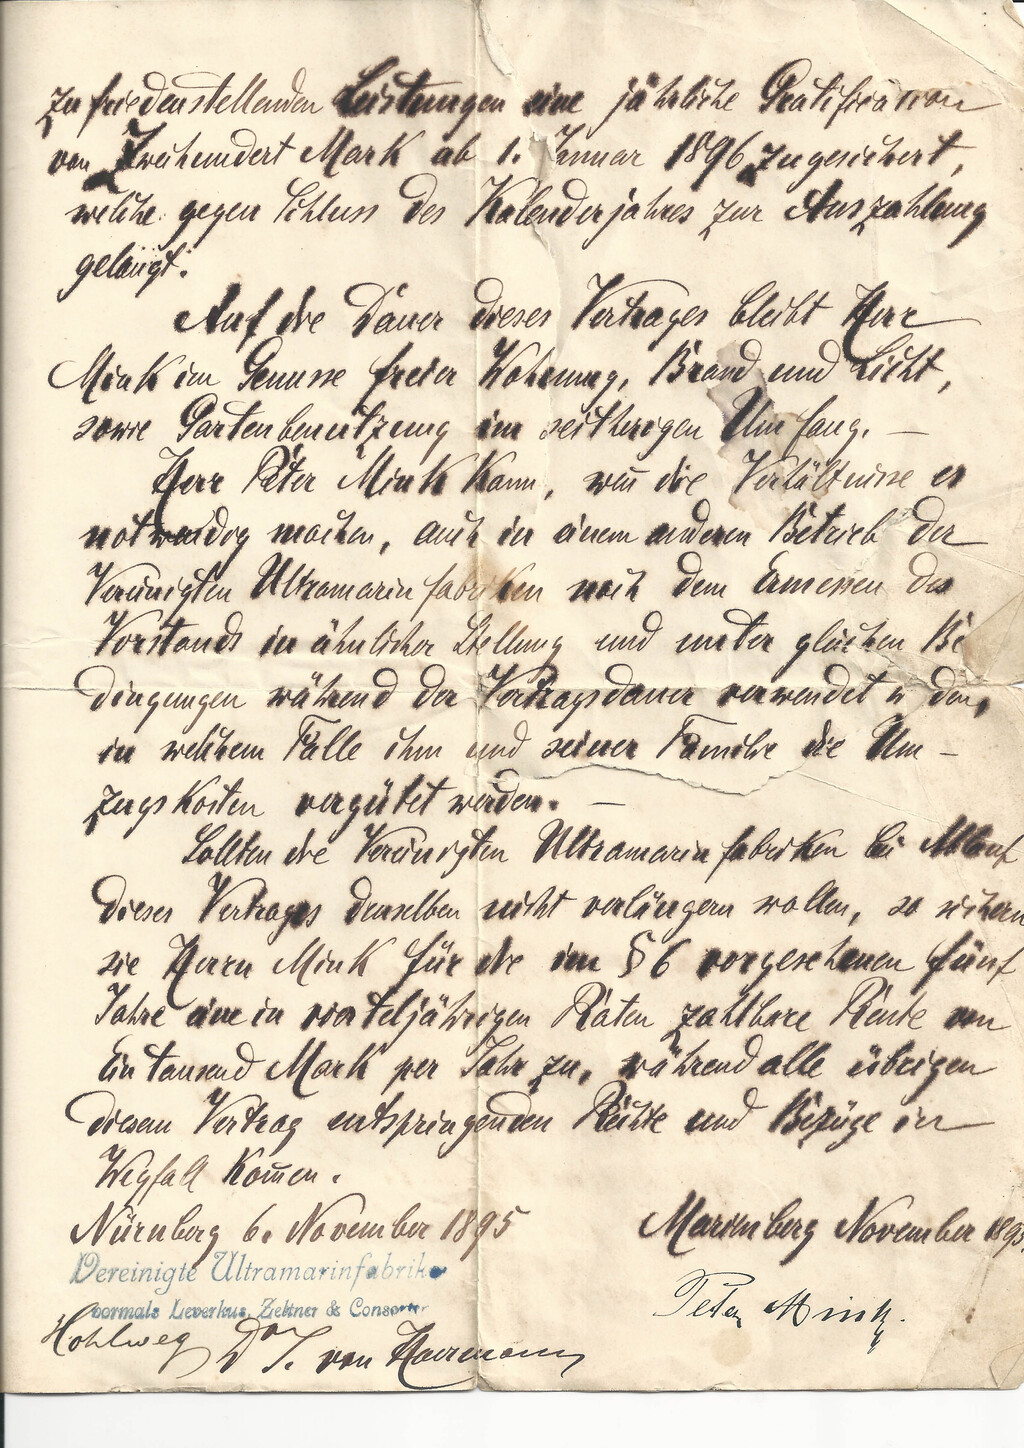 zufriedenstellenden Leistungen eine jährliche Gratification
von Zweihundert Mark ab 1. Januar 1896 zugesichert,
welche gegen Schluss des Kalenderjahres zur Auszahlung
gelangt.
Auf die Dauer dieses Vertrages bleibt Herr
Mink im Genusse freier Wohnung, Brand und Licht,
sowie Gartenbenutzung im seitherigen Umfang. —
Herr Peter Mink kann, weñ die Verhältnisse es
notwendig machen, auch in einem anderen Betrieb der
Vereinigten Ultramarinfabriken nach dem Ermessen des
Vorstands in ähnlicher Stellung und unter gleichen Be
dingungen während der Vertragsdauer verwendet werden,
in welchem Falle ihm und seiner Familie die Um-
zugskosten vergütet werden. —
Sollten die Vereinigten Ultramarinfabriken bei Ablauf
dieses Vertrages denselben nicht verlängern wollen, so sichern
sie Herrn Mink für die im § 6 vorgesehenen fünf
Jahre eine in vierteljährigen Raten zahlbare Rente von
Ein tausend Mark per Jahr zu, während alle übrigen
diesem Vertrag entspringenden Rechte und Bezüge in
Wegfall kom̄en.
Nürnberg 6. November 1895
Marienberg November 1895.
Vereinigte Ultramarinfabriken
vormals Leverkus, Zeltner & Consorten
Peter Mink.
Hohlweg Dr. J. von